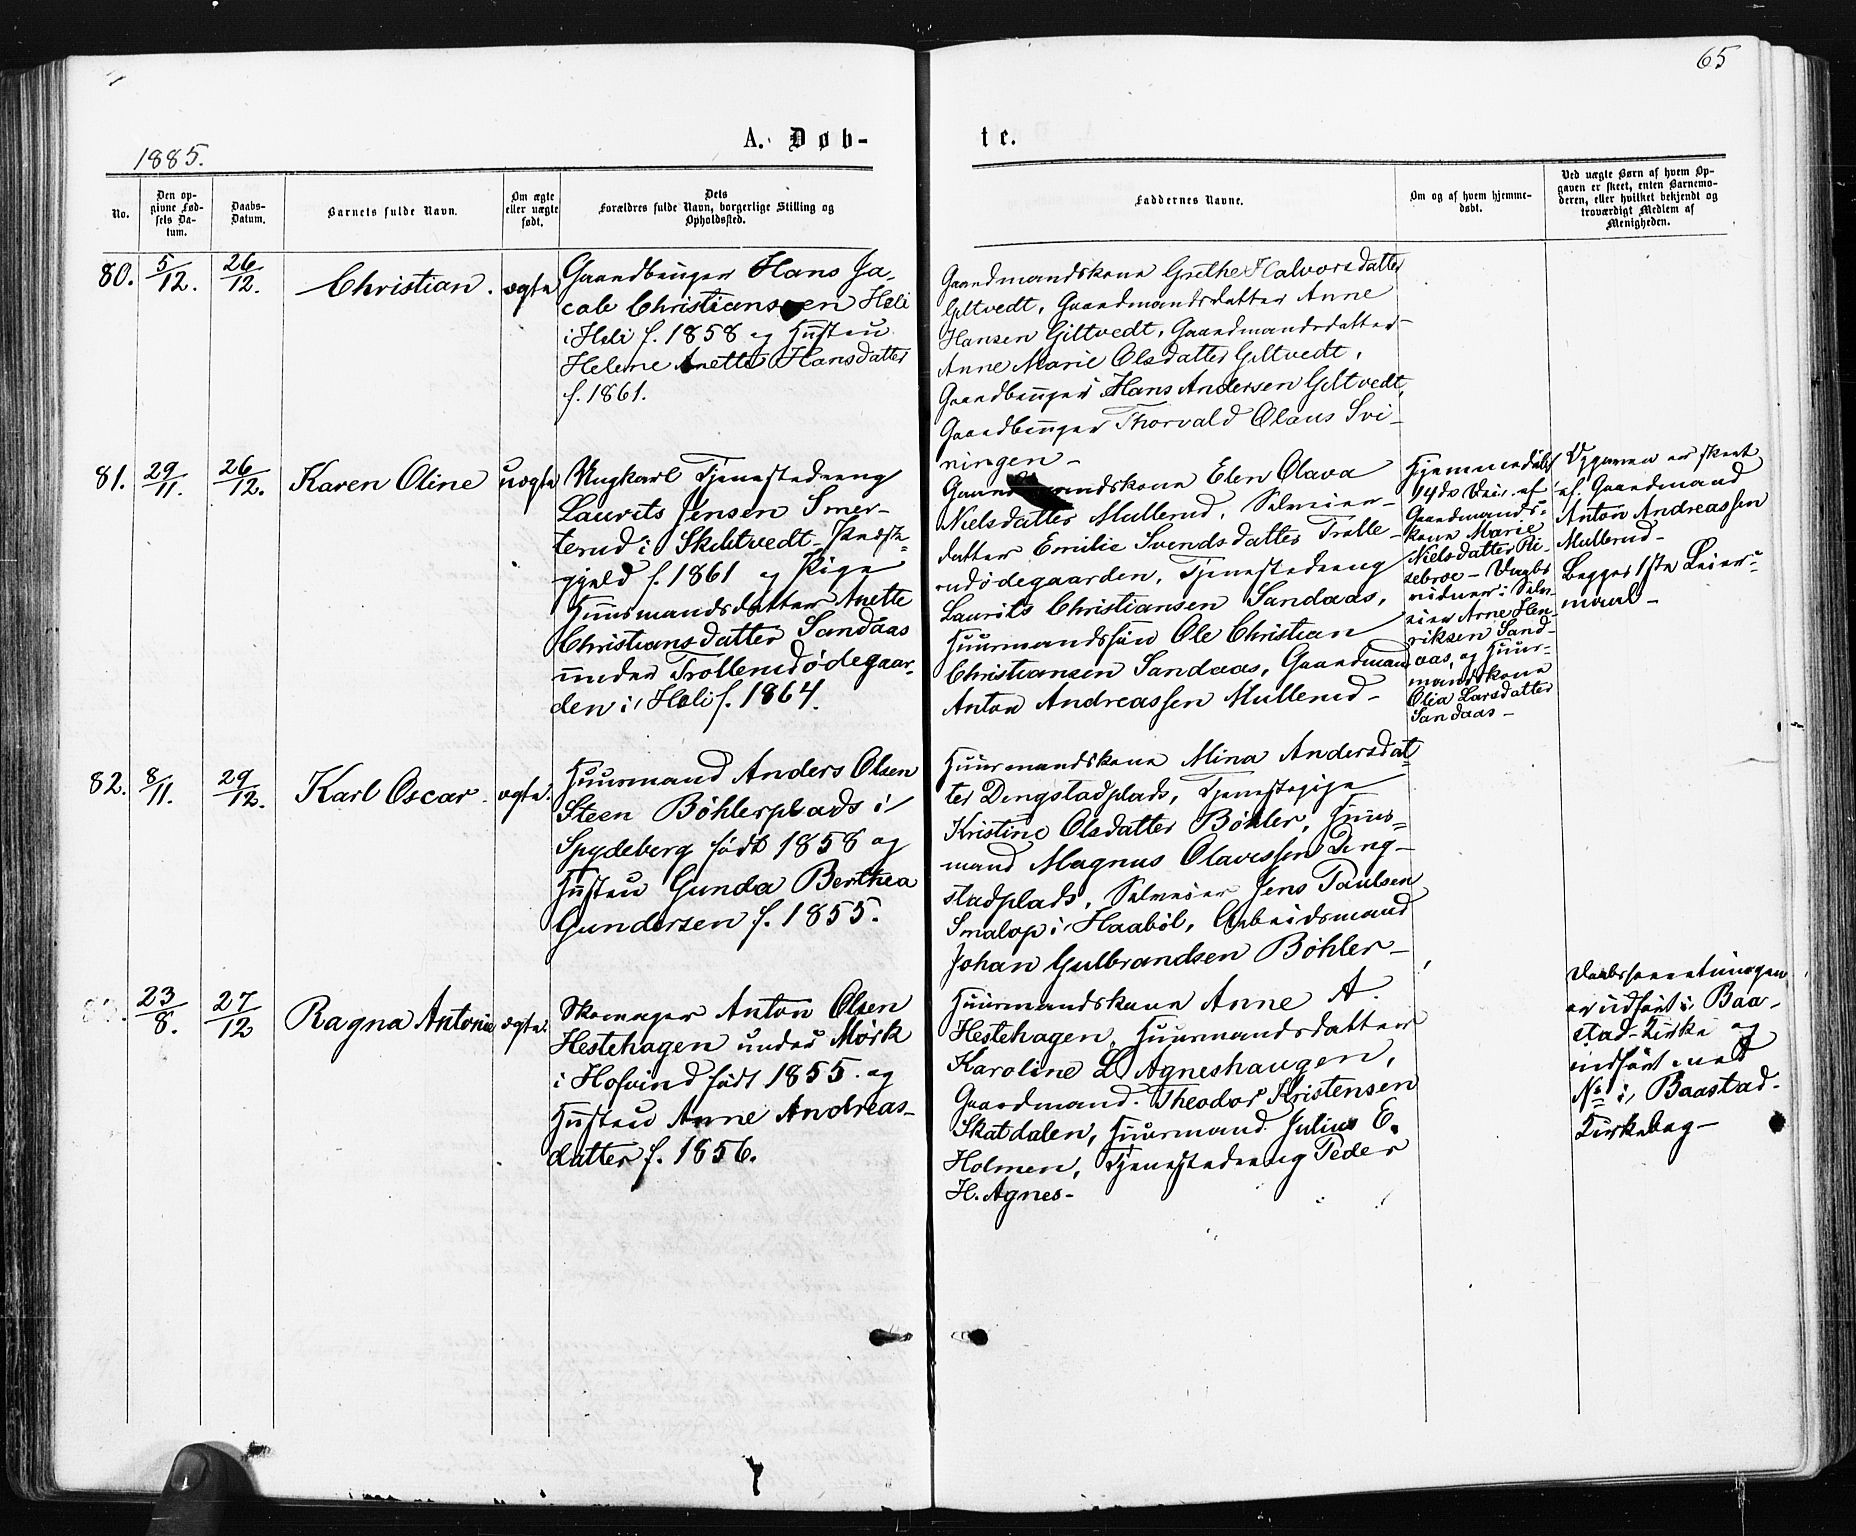 65
1885.
A. Døb-
te.
No.
Den op-
givne Fød-
sels Da-
tum.
Daabs-
Datum.
Barnets fulde Navn.
Om ægte
eller uægte
født.
Dets
Forældres fulde Navn, borgerlige Stilling og
Opholdssted.
Faddernes Navne.
Om og af hvem hjemme-
døbt.
Ved uægte Børn af hvem Op-
gaven er skeet, enten Barnemo-
deren, eller hvilket bekjendt og
troværdigt Medlem af
Menigheden.
80.
5/12.
26/12.
Christian.
ægte
Gaardbruger Hans Ja-
cob Christiansen Heli
i Heli f. 1858 og Hustru
Helene Anette Hansdatter
f. 1861.
Gaardmandskone Grethe Halvorsdatter
Giltvedt, Gaardmandsdatter Anne
Hansen Giltvedt, Gaardmandsdatter
Anne Marie Olsdatter Giltvedt,
Gaardbruger Hans Andersen Giltvedt,
Gaardbruger Thorvald Olaus Svi-
ningen-
81.
29/11.
26/12.
Karen Oline
uægte
Ungkarl Tjenestedreng
Laurits Jensen Smer-
terud i Skibtvedt Præste-
gjeld f. 1861 og Pige
Huusmandsdatter Anette
Christiansdatter Sandaas
under Trollerudødegaar-
den i Heli f. 1864.
Gaardmandskone Elen Olava
Nielsdatter Mullerud, Selveier-
datter Emilie Svendsdatter Trolle-
rudødegaarden, Tjenestedreng
Laurits Christiansen Sandaas,
Huusmandssøn Ole Christian
Christiansen Sandaas, Gaardmand
Anton Andreassen Mullerud-
Hjemmedøbt
14de Dcbr. af
Gaardmands-
kone Marie
Nielsdatter Ri-
sebroe - Daabs
vidner: Selv-
eier Arne Hen-
riksen Sand-
aas, og Huus-
mandskone
Olia Larsdatter
Sandaas-
Opgaven er skeet
af Gaardmand
Anton Andreassen
Mullerud-
Begges 1ste Leier-
maal-
82.
8/11.
29/12.
Karl Oscar.
ægte.
Huusmand Anders Olsen
Steen Bøhlerplads i
Spydeberg født 1858 og
Hustru Gunda Berthea
Gundersen f. 1855.
Huusmandskone Mina Andersdat-
ter Dingstadplads, Tjenestepige
Kristine Olsdatter Bøhler, Huus-
mand Magnus Olavessen Ding-
stadplads, Selveier Jens Paulsen
Smalop i Haabøl, Arbeidsmand
Johan Gulbrandsen Bøhler-
83.
23/8.
27/12
Ragna Antonia
ægte.
Skomager Anton Olsen
Hestehagen under Mørk
i Hofvind født 1855. og
Hustru Anne Andreas-
datter f. 1856.
Huusmandskone Anne A.
Hestehagen, Huusmandsdatter
Karoline L. Agneshaugen,
Gaardmand Theodor Kristensen
Skatdalen, Huusmand Julius E.
Holmen, Tjenestedreng Peder
H. Agnes-
Daabsforretningen
er udført i Baa-
stad Kirke og
indført med
No i Baastad
Kirkebog-